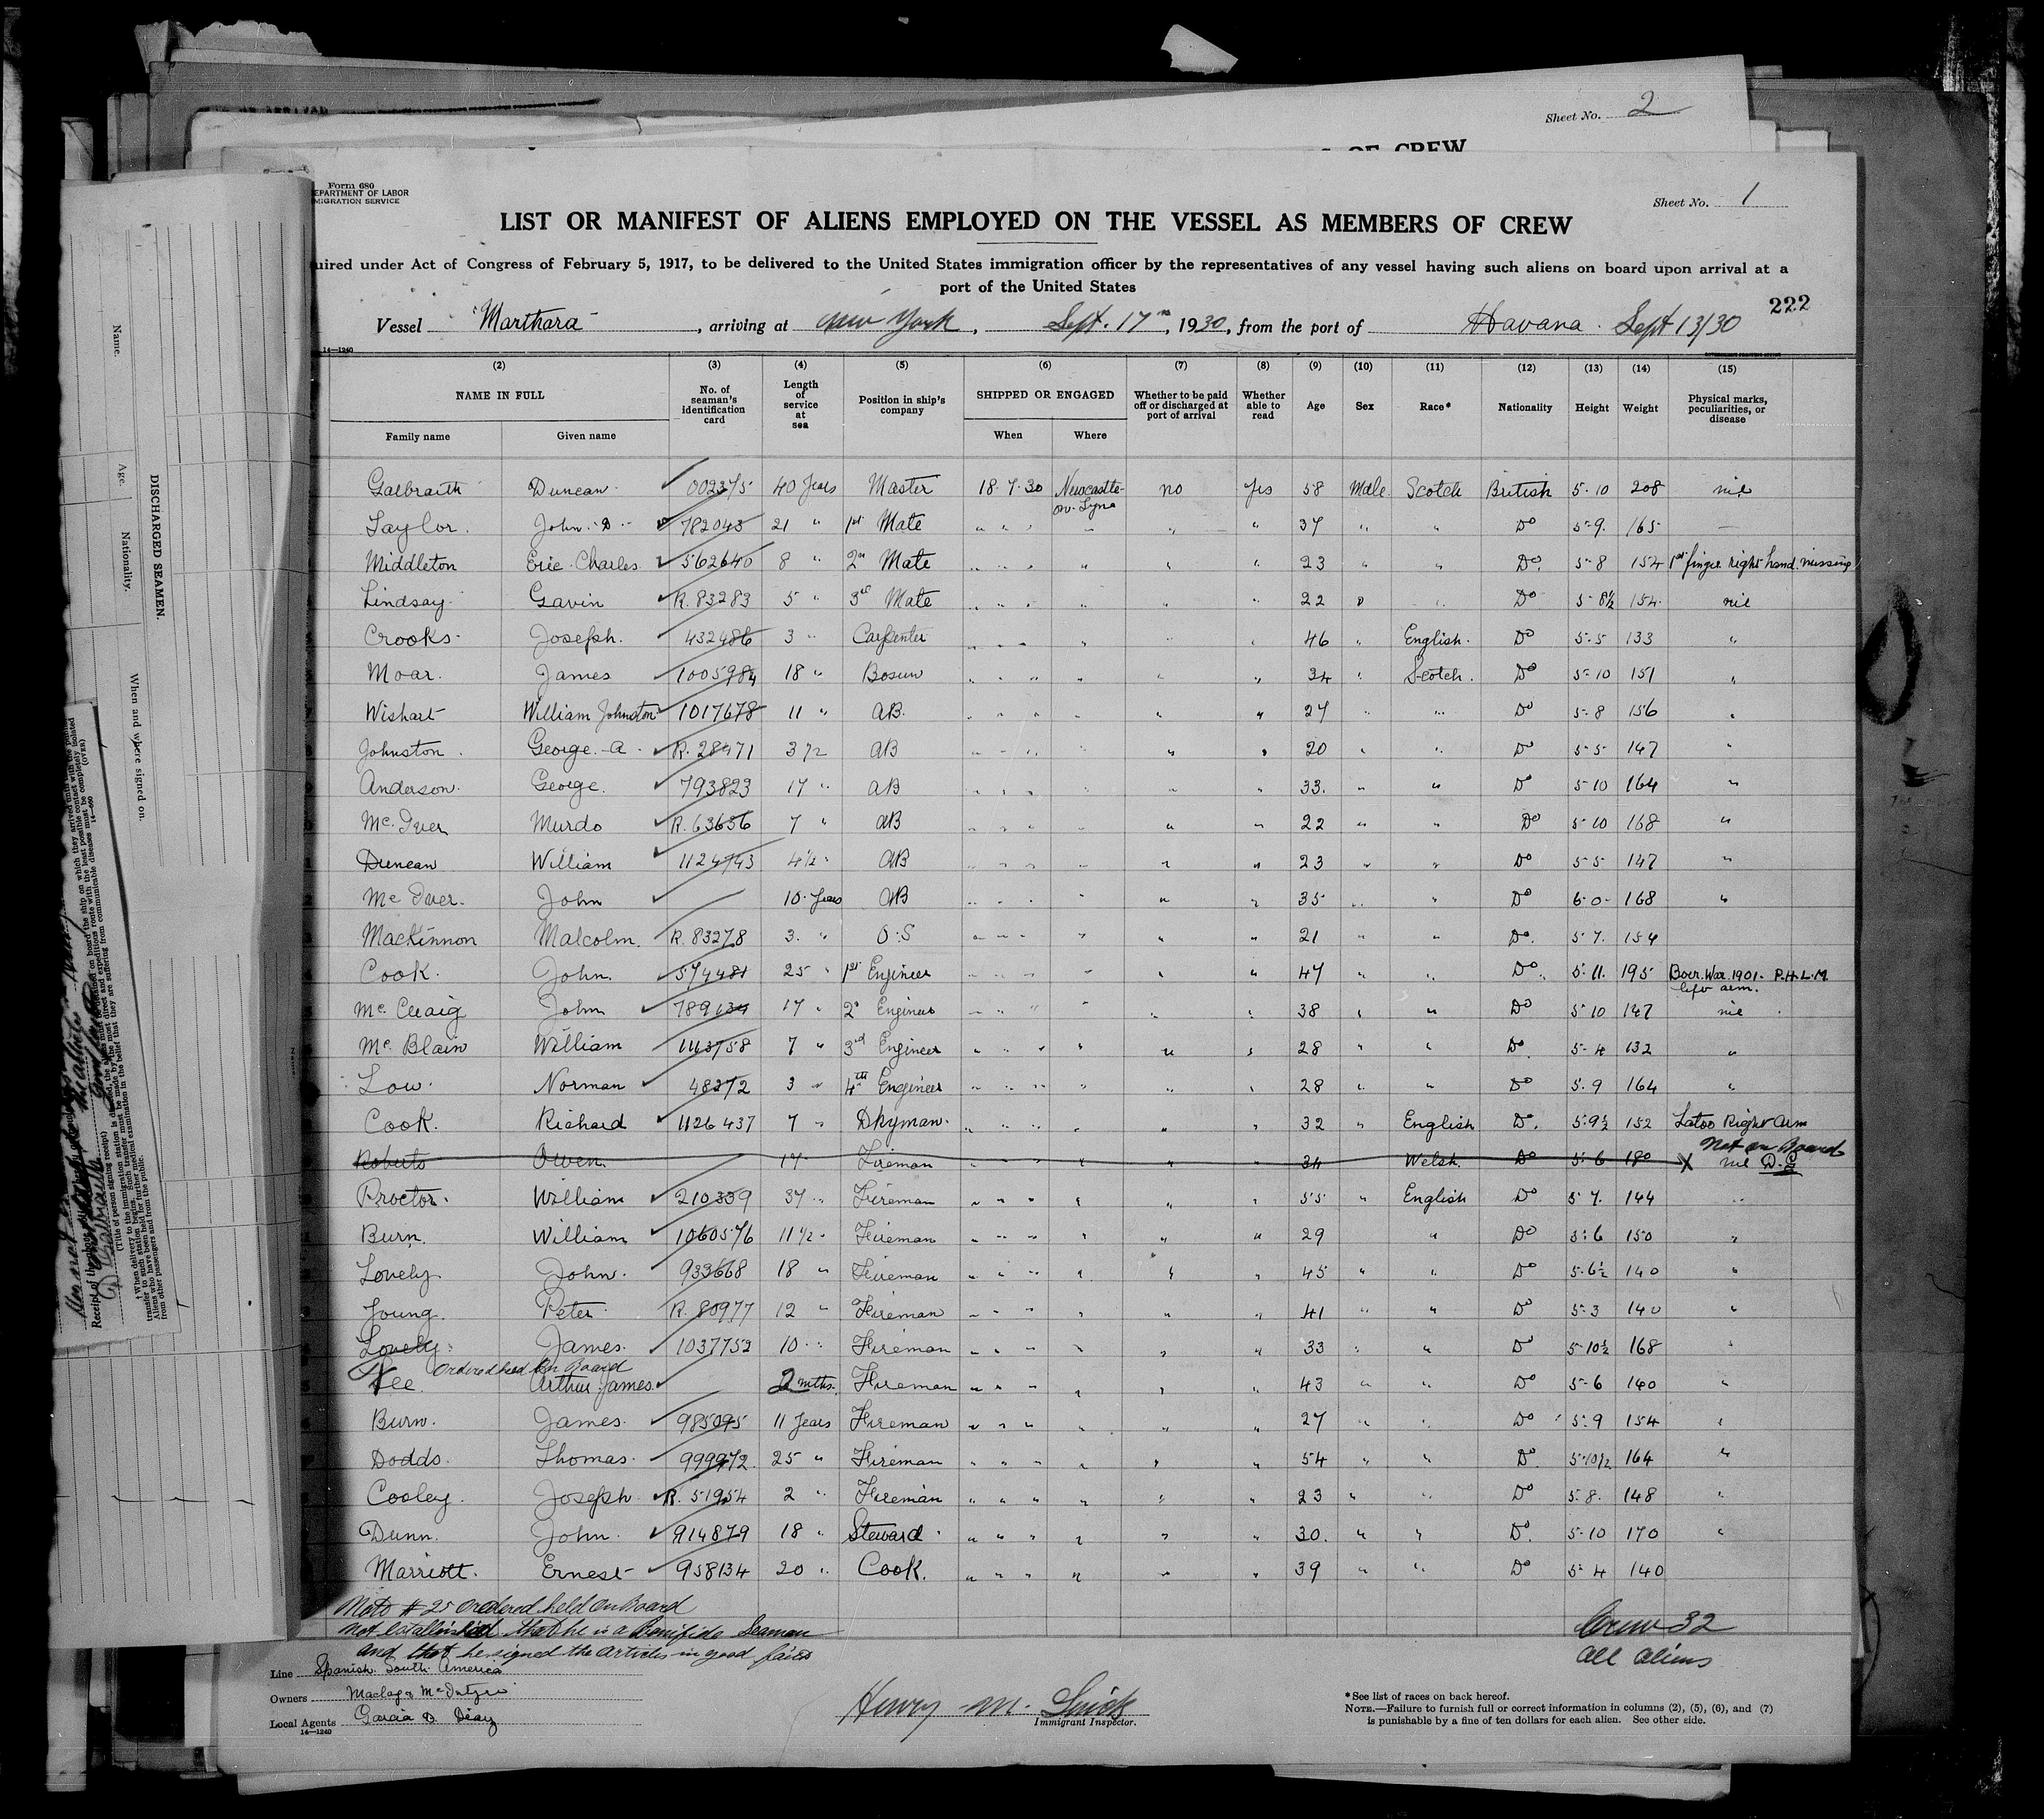 Sheet No. 2
OF CREW
Form 680
DEPARTMENT OF LABOR
MIGRATION SERVICE
Sheet No. 1
LIST OR MANIFEST OF ALIENS EMPLOYED ON THE VESSEL AS MEMBERS OF CREW
uired under Act of Congress of February 5, 1917, to be delivered to the United States immigration officer by the representatives of any vessel having such aliens on board upon arrival at a
port of the United States
222
Vessel "Marthara", arriving at New York, Sept. 17th, 1930, from the port of Havana. Sept 13/30
14—1240
(2) (3) (4) (5) (6) (7) (8) (9) (10) (11) (12) (13) (14) (15)
NAME IN FULL No. of seaman's identification card Length of service at sea Position in ship's company SHIPPED OR ENGAGED Whether to be paid off or discharged at port of arrival Whether able to read Age Sex Race* Nationality Height Weight Physical marks, peculiarities, or disease
Family name Given name When Where
Galbraith Duncan 002375 40 Years Master 18.7.30 Newcastle-on-Tyne no yes 58 Male Scotch British 5-10 208 nil
Taylor John. D. 782043 21 " 1st Mate " " " " " " 37 " " Do 5-9 165 —
Middleton Eric Charles 562640 8 " 2nd Mate " " " " " " 23 " " Do 5-8 154 1st finger right hand missing
Lindsay Gavin R. 83283 5 " 3rd Mate " " " " " " 22 " " Do 5-8½ 154 nil
Crooks Joseph 432486 3 " Carpenter " " " " " " 46 " English Do 5-5 133 "
Moar James 1005984 18 " Bosun " " " " " " 34 " Scotch Do 5-10 151 "
Wishart William Johnston 1017678 11 " AB " " " " " " 27 " " Do 5-8 156 "
Johnston George A R. 28471 3½ AB " " " " " " 20 " " Do 5-5 147 "
Anderson George 793823 17 " AB " " " " " " 33 " " Do 5-10 164 "
Mc Iver Murdo R. 63656 7 " AB " " " " " " 22 " " Do 5-10 168 "
Duncan William 1124743 4½ " AB " " " " " " 23 " " Do 5-5 147 "
Mc Iver John 10 Years AB " " " " " " 35 " " Do 6-0 168 "
Mackinnon Malcolm R. 83278 3 " O.S " " " " " " 21 " " Do 5-7 154
Cook John 574481 25 " 1st Engineer " " " " " " 47 " " Do 5-11 195 Boer War 1901. P.H.L.M. left arm.
Mc Craig John 789134 17 " 2nd Engineer " " " " " " 38 " " Do 5-10 147 nil
Mc Blain William 1113758 7 " 3rd Engineer " " " " " " 28 " " Do 5-4 132 "
Low Norman 48272 3 " 4th Engineer " " " " " " 28 " " Do 5-9 164 "
Cook Richard 1126437 7 " Dkyman " " " " " " 32 " English Do 5-9½ 152 Tatoo Right Arm
Roberts Owen 17 " Fireman " " 34 Welsh Do 5-6 180 X nil Not on Board D.G
Proctor William 210359 37 " Fireman " " " " " " 55 " English Do 5-7 144 "
Burn William 1060576 11½ " Fireman " " " " " " 29 " Do 5-6 150 "
Lovely John 933668 18 " Fireman " " " " " " 45 " " Do 5-6½ 140 "
Young Peter R. 80977 12 " Fireman " " " " " " 41 " " Do 5-3 140 "
Lovely James 1037752 10 " Fireman " " " " " " 33 " " Do 5-10½ 168 "
Ordered held On Board
X Lee Arthur James 2 mths. Fireman " " " " " " 43 " " Do 5-6 140 "
Burn James 985095 11 Years Fireman " " " " " " 27 " " Do 5-9 154 "
Dodds Thomas 999972 25 " Fireman " " " " " " 54 " " Do 5-10½ 164 "
Cooley Joseph R. 51954 2 " Fireman " " " " " " 23 " " Do 5-8 148 "
Dunn John 914879 18 " Steward " " " " " " 30 " " Do 5-10 170 "
Marriott Ernest 958134 20 " Cook " " " " " " 39 " " Do 5-4 140
Note # 25 ordered held on Board
not established that he is a Bonifide Seaman
and that he signed the articles in good faith
Crew 32
All Aliens
Line Spanish South America
Owners Maclay & McIntyre
Local Agents Garcia & Diaz
14—1240
Henry M.
Immigrant Inspector.
*See list of races on back hereof.
NOTE.—Failure to furnish full or correct information in columns (2), (5), (6), and (7)
is punishable by a fine of ten dollars for each alien. See other side.
DISCHARGED SEAMEN.
Name. Age. Nationality. When and where signed on.
(Title of person signing receipt)
(OVER)
14—660